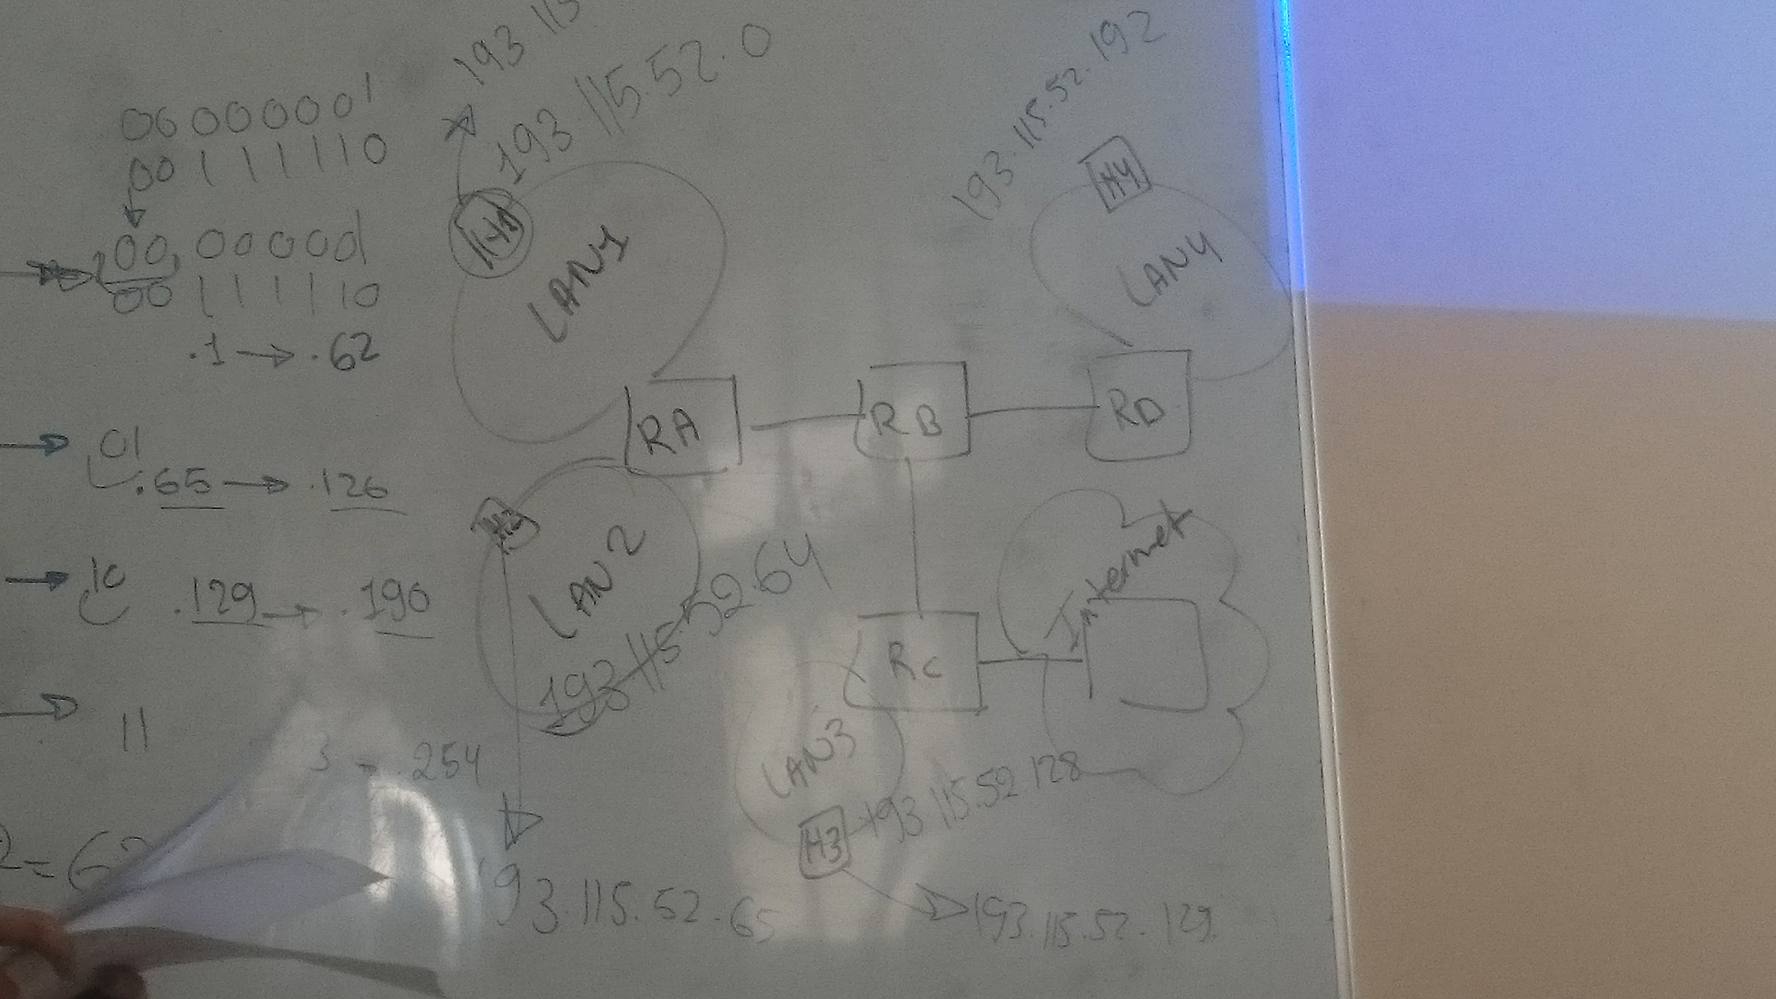 0000000 1
00 1 1 1 1 1 0
00 000001
00 1 1 1 1 1 0
.1 → .62
01
.65 → .126
10
.129 → .190
11
.254
193.115.52.0
H1
LAN1
193.115.52.192
H4
LAN4
RA
RB
RD
H2
LAN2
193.115.52.64
Rc
Internet
LAN3
H3
193.115.52.128
93.115.52.65
193.115.52.129